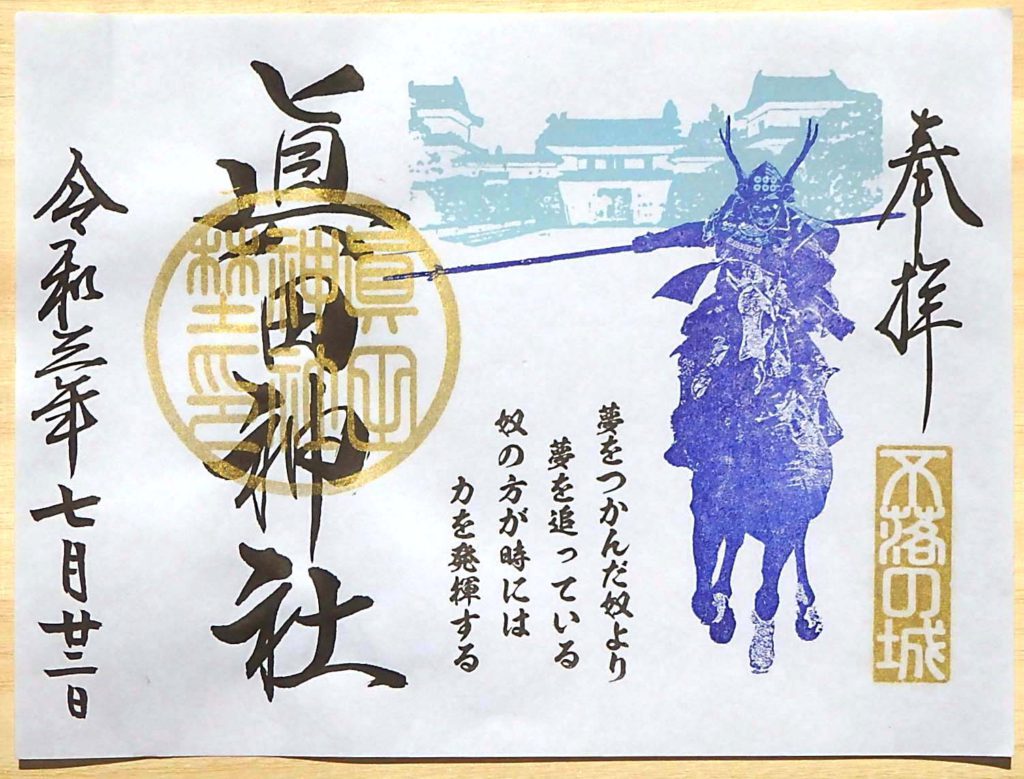 奉拝
不落の城
夢をつかんだ奴より
夢を追っている
奴の方が時には
力を発揮する
眞田神社
眞田
神社
璽印
令和三年七月廿二日